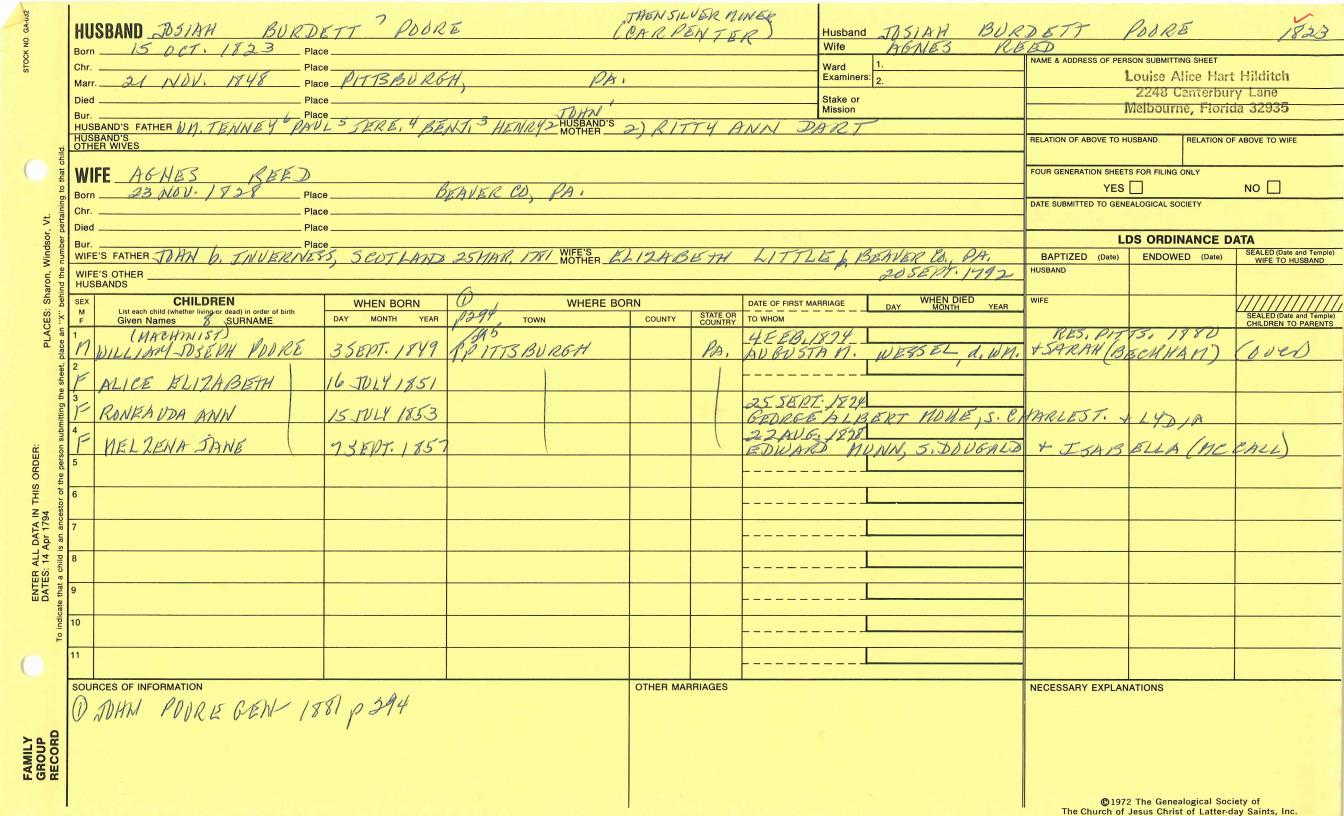 STOCK NO. GA-002
HUSBAND JOSIAH BURDETT 7 POORE (THEN SILVER MINER
(CARPENTER)
Born 15 OCT. 1823 Place
Chr. Place
Marr. 21 NOV. 1848 Place PITTSBURGH, PA.
Died Place
Bur. Place
HUSBAND'S FATHER WM. TENNEY 6 PAUL 5 JERE. 4 BENJ. 3 HENRY 2 JOHN 1 HUSBAND'S MOTHER 2) RITTY ANN DART
HUSBAND'S OTHER WIVES
Husband JOSIAH BURDETT POORE 1823
Wife AGNES REED
Ward 1.
Examiners: 2.
Stake or
Mission
NAME & ADDRESS OF PERSON SUBMITTING SHEET
Louise Alice Hart Hilditch
2248 Canterbury Lane
Melbourne, Florida 32935
RELATION OF ABOVE TO HUSBAND. RELATION OF ABOVE TO WIFE
FOUR GENERATION SHEETS FOR FILING ONLY
YES NO
DATE SUBMITTED TO GENEALOGICAL SOCIETY
WIFE AGNES REED
Born 23 NOV. 1828 Place BEAVER CO, PA.
Chr. Place
Died Place
Bur. Place
WIFE'S FATHER JOHN b. INVERNESS, SCOTLAND 25 MAR. 1781 WIFE'S MOTHER ELIZABETH LITTLE b BEAVER CO, PA.
20 SEPT. 1792
WIFE'S OTHER HUSBANDS
LDS ORDINANCE DATA
BAPTIZED (Date) ENDOWED (Date) SEALED (Date and Temple) WIFE TO HUSBAND
HUSBAND
WIFE
SEALED (Date and Temple) CHILDREN TO PARENTS
SEX M F CHILDREN WHEN BORN ① WHERE BORN DATE OF FIRST MARRIAGE WHEN DIED
List each child (whether living or dead) in order of birth p294 DAY MONTH YEAR
Given Names 8 SURNAME DAY MONTH YEAR TOWN COUNTY STATE OR COUNTRY TO WHOM
1 (MACHINIST) 4 FEB. 1874 RES. PITTS. 1980
M WILLIAM JOSEPH POORE 3 SEPT. 1849 PITTSBURGH PA. AUGUSTA M. WESSEL, d. WM. + SARAH (BECKHAM) (over)
2
F ALICE ELIZABETH 16 JULY 1851
3 25 SEPT. 1874
F RONEAUDA ANN 15 JULY 1853 GEORGE ALBERT MOWE, S. CHARLES T. + LYDIA
4 22 AUG. 1878
F MELZENA JANE 7 SEPT. 1857 EDWARD MUNN, S. DOUGALD + ISABELLA (MCCALL)
5
6
7
8
9
10
11
SOURCES OF INFORMATION OTHER MARRIAGES NECESSARY EXPLANATIONS
① JOHN POORE GEN 1881 p 294
©1972 The Genealogical Society of
The Church of Jesus Christ of Latter-day Saints, Inc.
PLACES: Sharon, Windsor, Vt.
ENTER ALL DATA IN THIS ORDER:
DATES: 14 Apr 1794
To indicate that a child is an ancestor of the person submitting the sheet, place an "X" behind the number pertaining to that child.
FAMILY
GROUP
RECORD